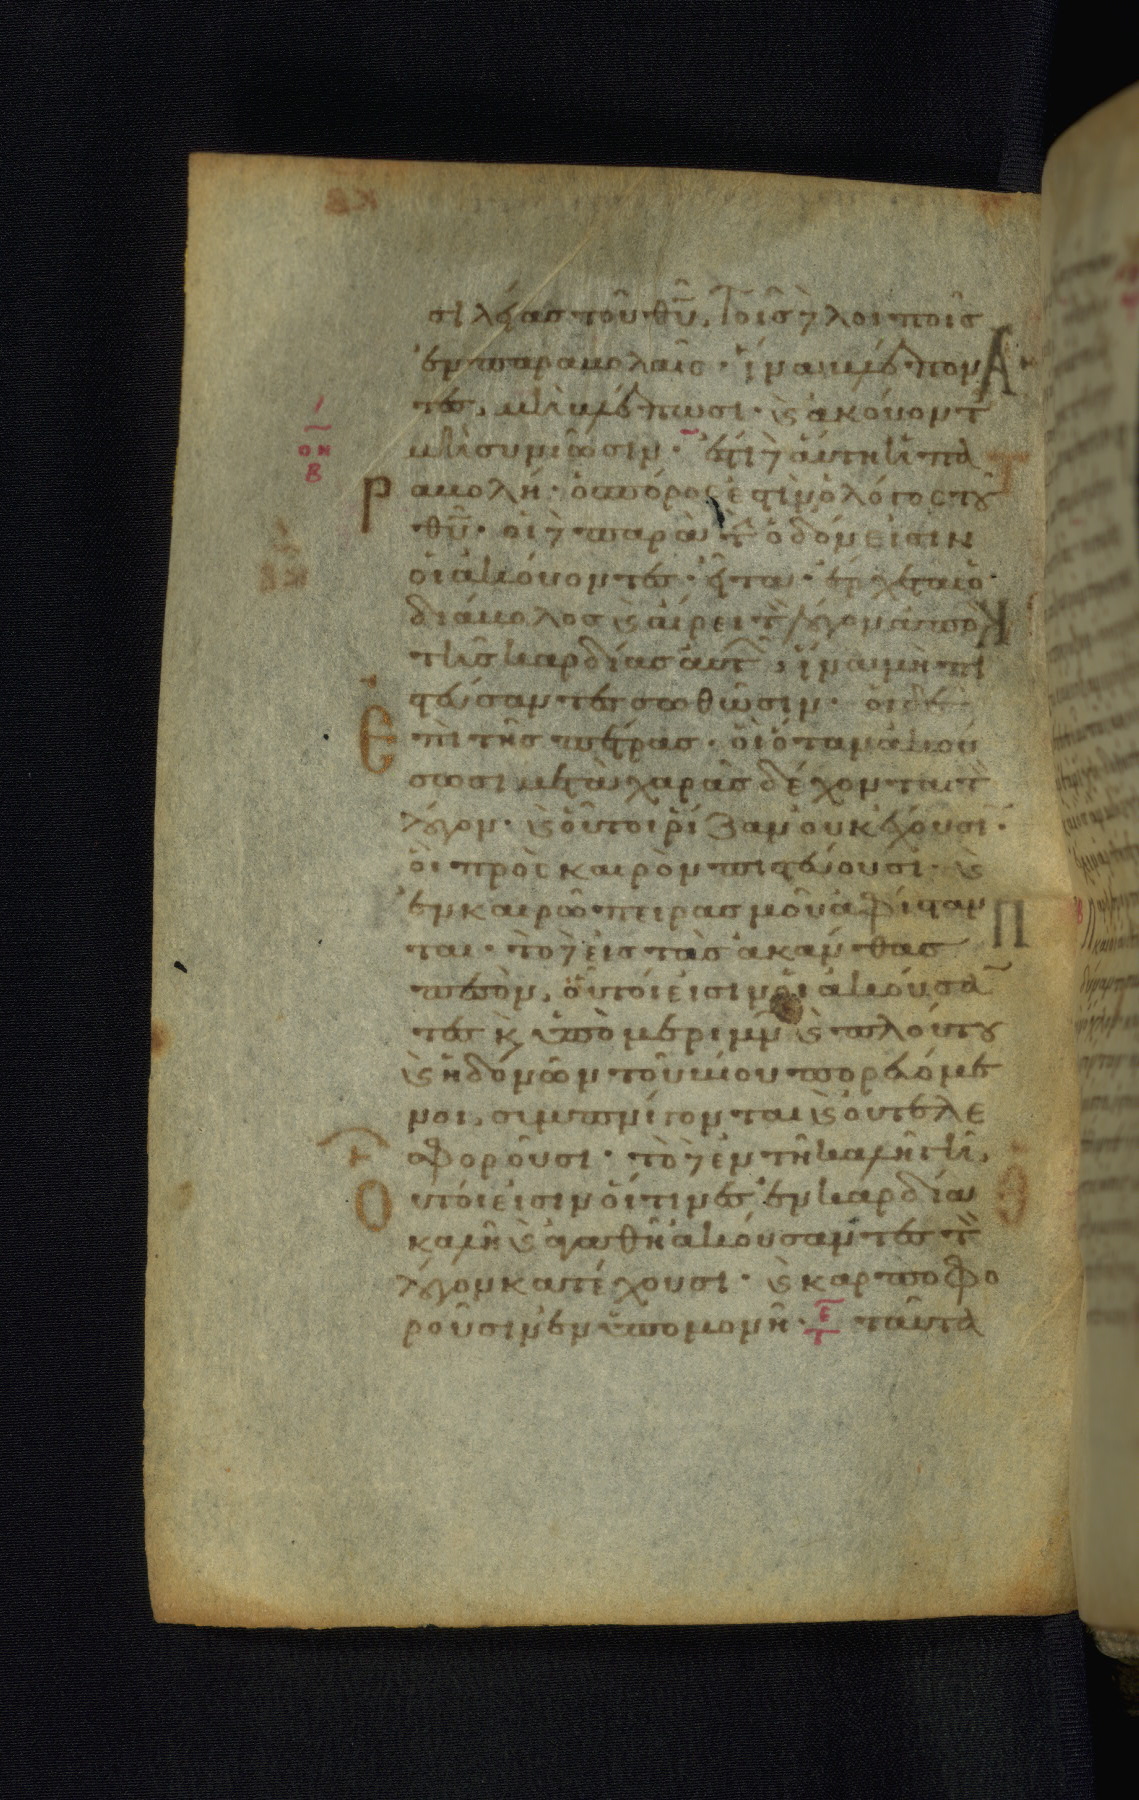 σιλείας τοῦ θῦ, τοῖς δὲ λοιποῖς
ἐν παραβολαῖς· ἵνα βλέπον
τες, μὴ βλέπωσι· κ ἀκούοντ
μὴ συνιῶσιν· ἔστι δὲ ἅυτη ἡ πα
ραβολή· ὁ σπόρος ἐστὶν ὁ λόγος τοῦ
θῦ· οἱ δὲ παρὰ τ ὁδόν εἰσιν
οἱ ἀκούοντες· εἶτα ἔρχεται ὁ
διάβολος κ αἴρει τ λόγον ἀπὸ
τῆς καρδίας αὐτ, ἵνα μὴ πι
στεύσαντες σωθῶσιν· οἱ δὲ
ἐπὶ τῆς πέτρας· οἳ ὅταν ἀκού
σωσι μετὰ χαρᾶς δέχονται τ
λόγον· κ οὗτοι ῥίζαν οὐκ ἔχουσι·
οἳ πρὸς καιρὸν πιστεύουσι· κ
ἐν καιρῶ πειρασμοῦ ἀφίσταν
ται· τὸ δὲ εἰς τὰς ἀκάνθας
πεσὸν, οὗτοί εἰσιν οἱ ἀκούσα
τες κ ὑπὸ μεριμν κ πλούτου
κ ἡδονῶν τοῦ βίου πορευόμε
νοι, συμπνίγονται κ οὐ τελε
σφοροῦσι· τὸ δὲ ἐν τῆ καλῆ γῆ,
οὗτοί εἰσιν οἵτινες ἐν καρδία
καλῆ κ ἀγαθῆ ἀκούσαντες τ
λόγον κατέχουσι· κ καρποφο
ροῦσιν ἐν ὑπομονῆ· ταῦτα